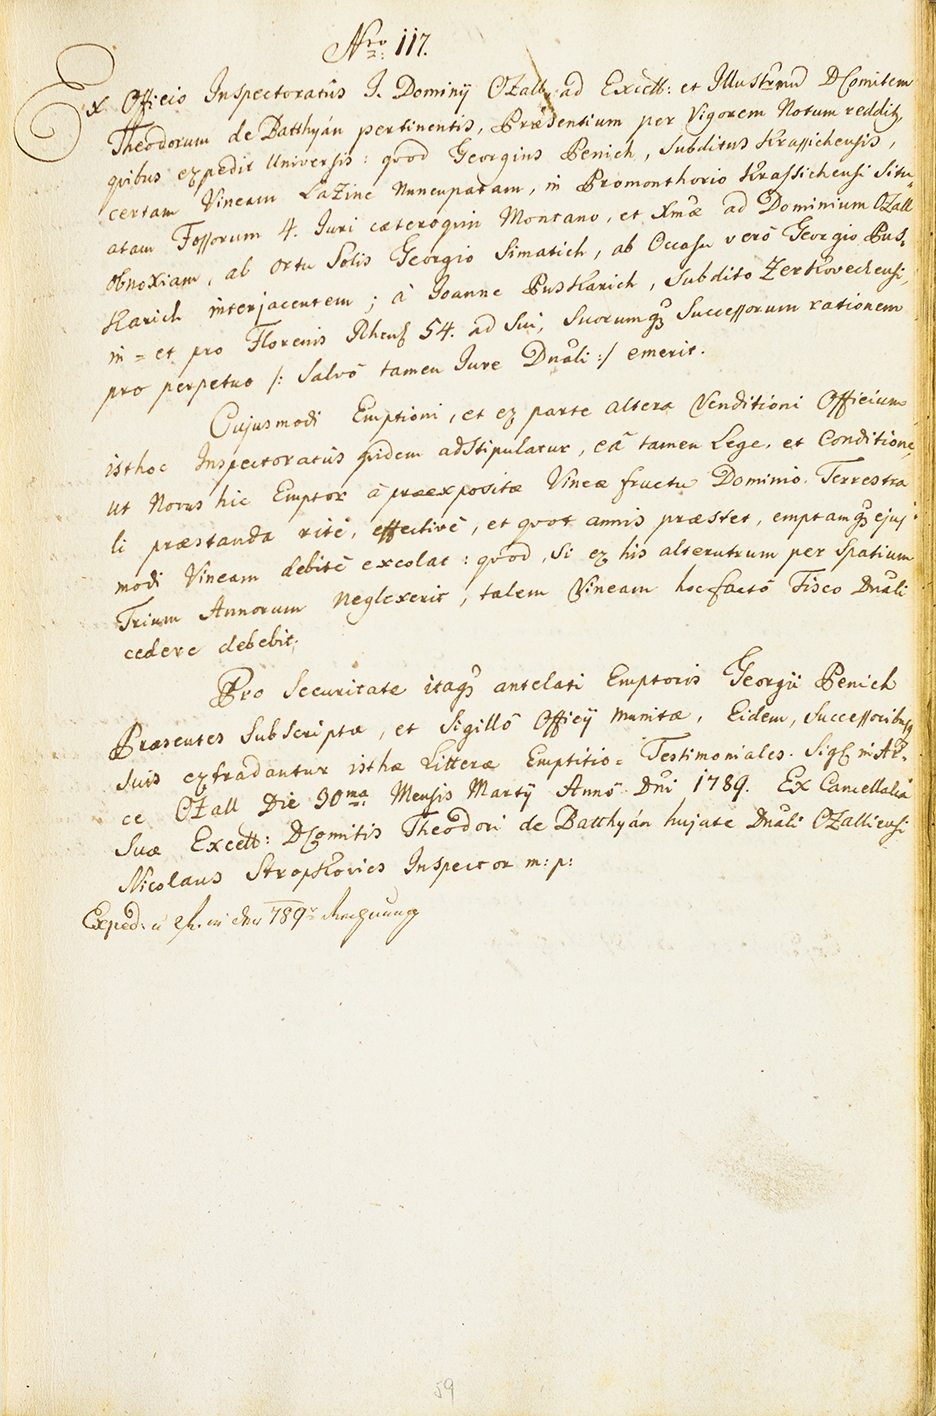 Nro 117.
Ex Officio Inspectoratûs I. Dominÿ Ozall ad Excell: et Illustrmũ D Comitem
Theodorum de Batthyán pertinentis, Præsentium per Vigorem Notum redditz,
quibus expedit Universis: quod Georgius Penich, Subditus Krassichensis,
certam Vineam Lazine Nuncupatam, in Promonthorio Krassichensi Situ-
atam Fossorum 4. Iuri cæteroquin Montano, et Xmæ ad Dominium Ozall
obnoxiam, ab ortu Solis Georgio Simatich, ab Occasu verò Georgio Pus-
Karich interjacentem; à Joanne Puskarich, Subdito Zerkovechensi,
in = et pro Florenis Rhens 54. ad Sui, Suorumqȝ Successorum rationem
pro perpetuo /: Salvô tamen Jure Dnãli :/ emerit.
Cujusmodi Emptioni, et ex parte altera Venditioni Officium
isthoc Inspectoratûs quidem adstipulatur, eâ tamen Lege, et Conditione,
ut Novus hic Emptor à præexpositæ Vineæ fructu Dominio Terrestra
li præstanda ritè, effectivè, et quot annis præstet, emptamqȝ ejus
modi Vineam debitè excolat: quòd, Si ex his alterutrum per Spatium
Trium Annorum neglexerit, talem Vineam hocfactô Fisco Dnãli
cedere debebit;
Pro Securitate itaqȝ antelati Emptoris Georgii Penich
Præsentes Subscriptæ, et Sigillô Officÿ munitæ, Eidem, Successoribusqȝ
Suis extradantur isthæ Litteræ Emptitio = Testimoniales. Sigl in Ar-
ce Ozall Die 30ma Mensis Martÿ Annô Dni 1789. Ex Cancellaria
Suæ Excell: D Comitis Theodori de Batthyán hujate Dnãli Ozalliensi
Nicolaus Stropkovics Inspector m: p:
Exped: 789
59